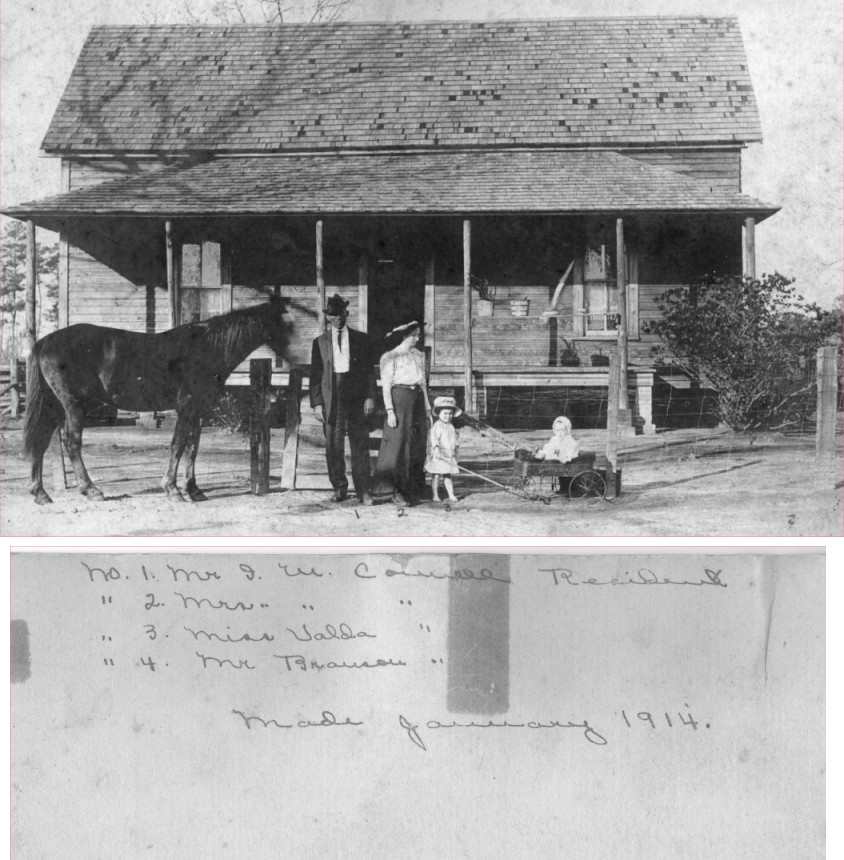 1 2 3
No. 1. Mr I. W. Resident
" 2. Mrs " " "
" 3. Miss Valda "
" 4. Mr Branson "
Made January 1914.